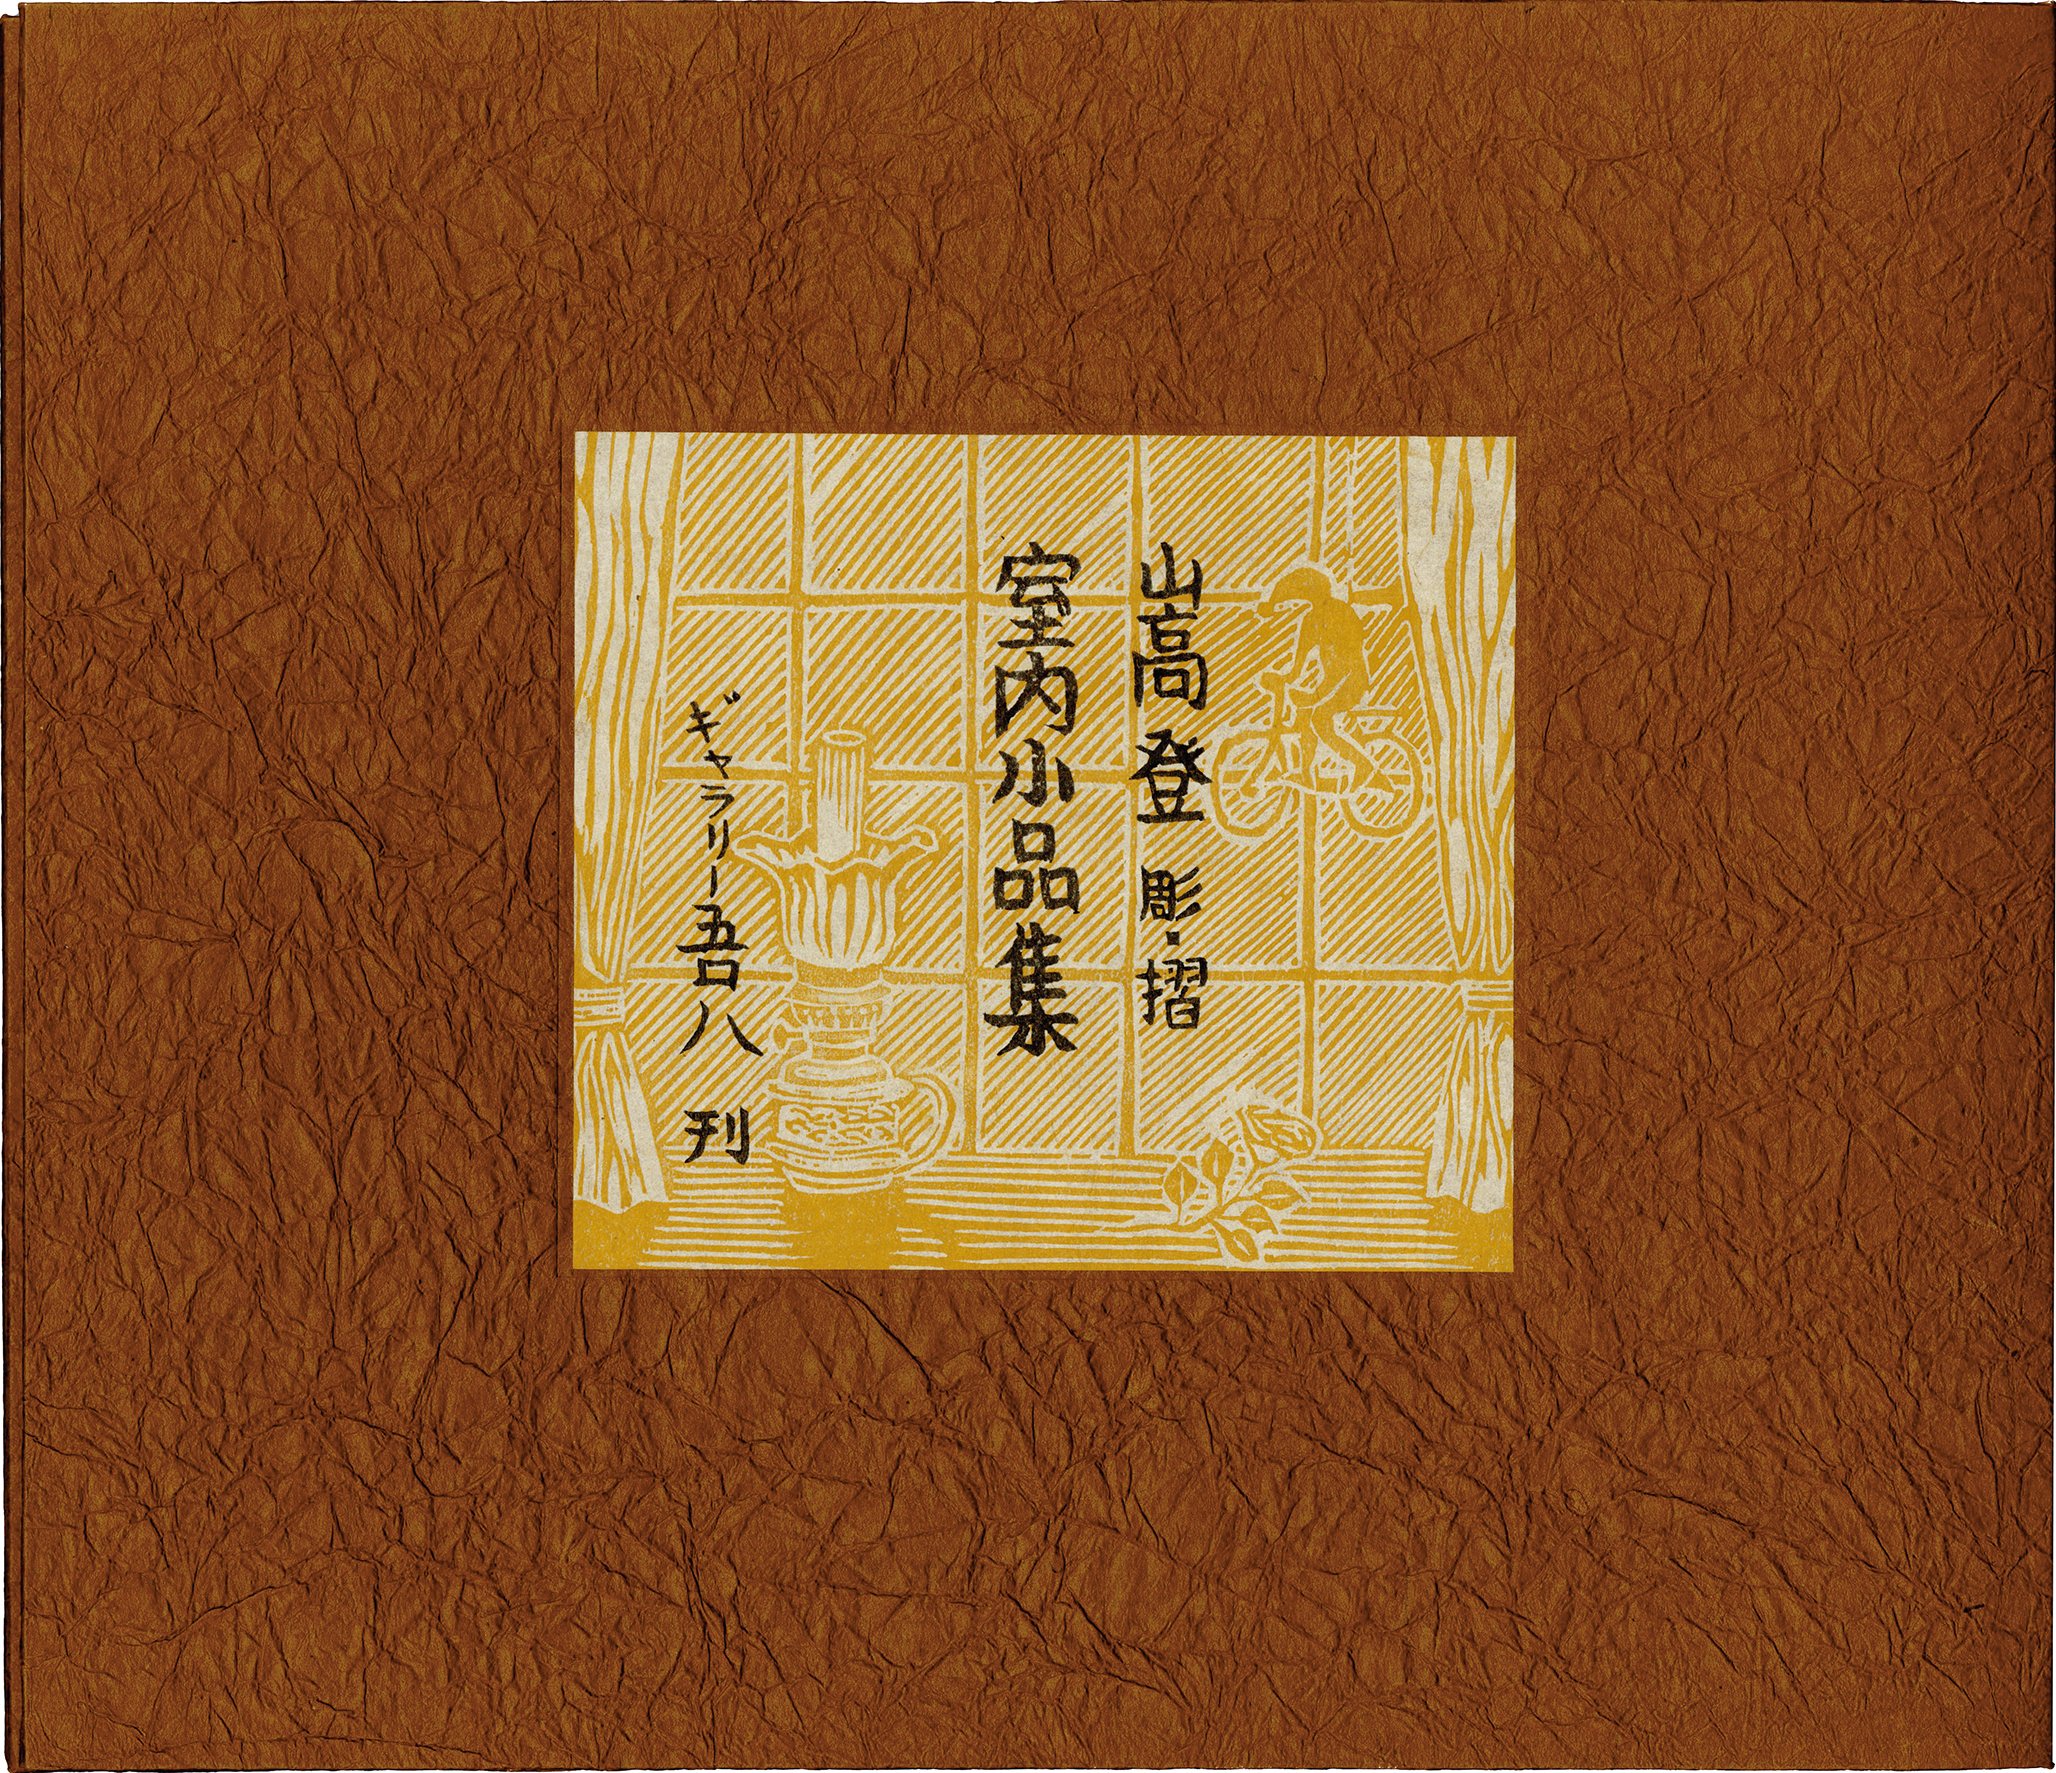 山高登 彫・摺
室内小品集
ギャラリー吾八 刊